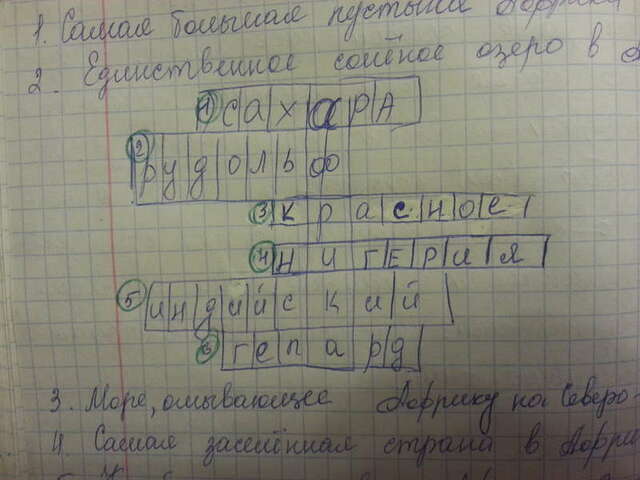 1. Самая большая пустыня Африки
2. Единственное солёное озеро в А
1 сахарА
2 рудольф
3 красное
4 нигерия
5 индийский
6 гепард
3. Море, омывающее Африку на Северо-
4. Самая заселённая страна в Афри
5.